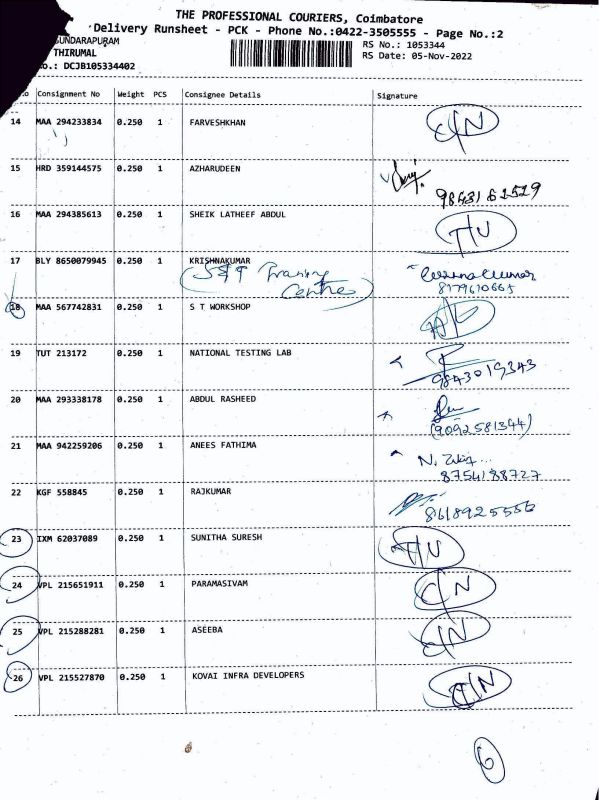 THE PROFESSIONAL COURIERS, Coimbatore
Delivery Runsheet - PCK - Phone No.:0422-3505555 - Page No.:2
SUNDARAPURAM
RS No.: 1053344
THIRUMAL
RS Date: 05-Nov-2022
o.: DCJB105334402
Consignment No Weight PCS Consignee Details Signature
14 MAA 294233834 0.250 1 FARVESHKHAN
15 HRD 359144575 0.250 1 AZHARUDEEN
9843162529
16 MAA 294385613 0.250 1 SHEIK LATHEEF ABDUL
17 BLY 8650079945 0.250 1 KRISHNAKUMAR
S&T Training
Centre
8179610665
18 MAA 567742831 0.250 1 S T WORKSHOP
19 TUT 213172 0.250 1 NATIONAL TESTING LAB
9843019343
20 MAA 293338178 0.250 1 ABDUL RASHEED
(9092581344)
21 MAA 942259206 0.250 1 ANEES FATHIMA
8754188727
22 KGF 558845 0.250 1 RAJKUMAR
8618925556
23 IXM 62037089 0.250 1 SUNITHA SURESH
24 VPL 215651911 0.250 1 PARAMASIVAM
25 VPL 215288281 0.250 1 ASEEBA
26 VPL 215527870 0.250 1 KOVAI INFRA DEVELOPERS
6